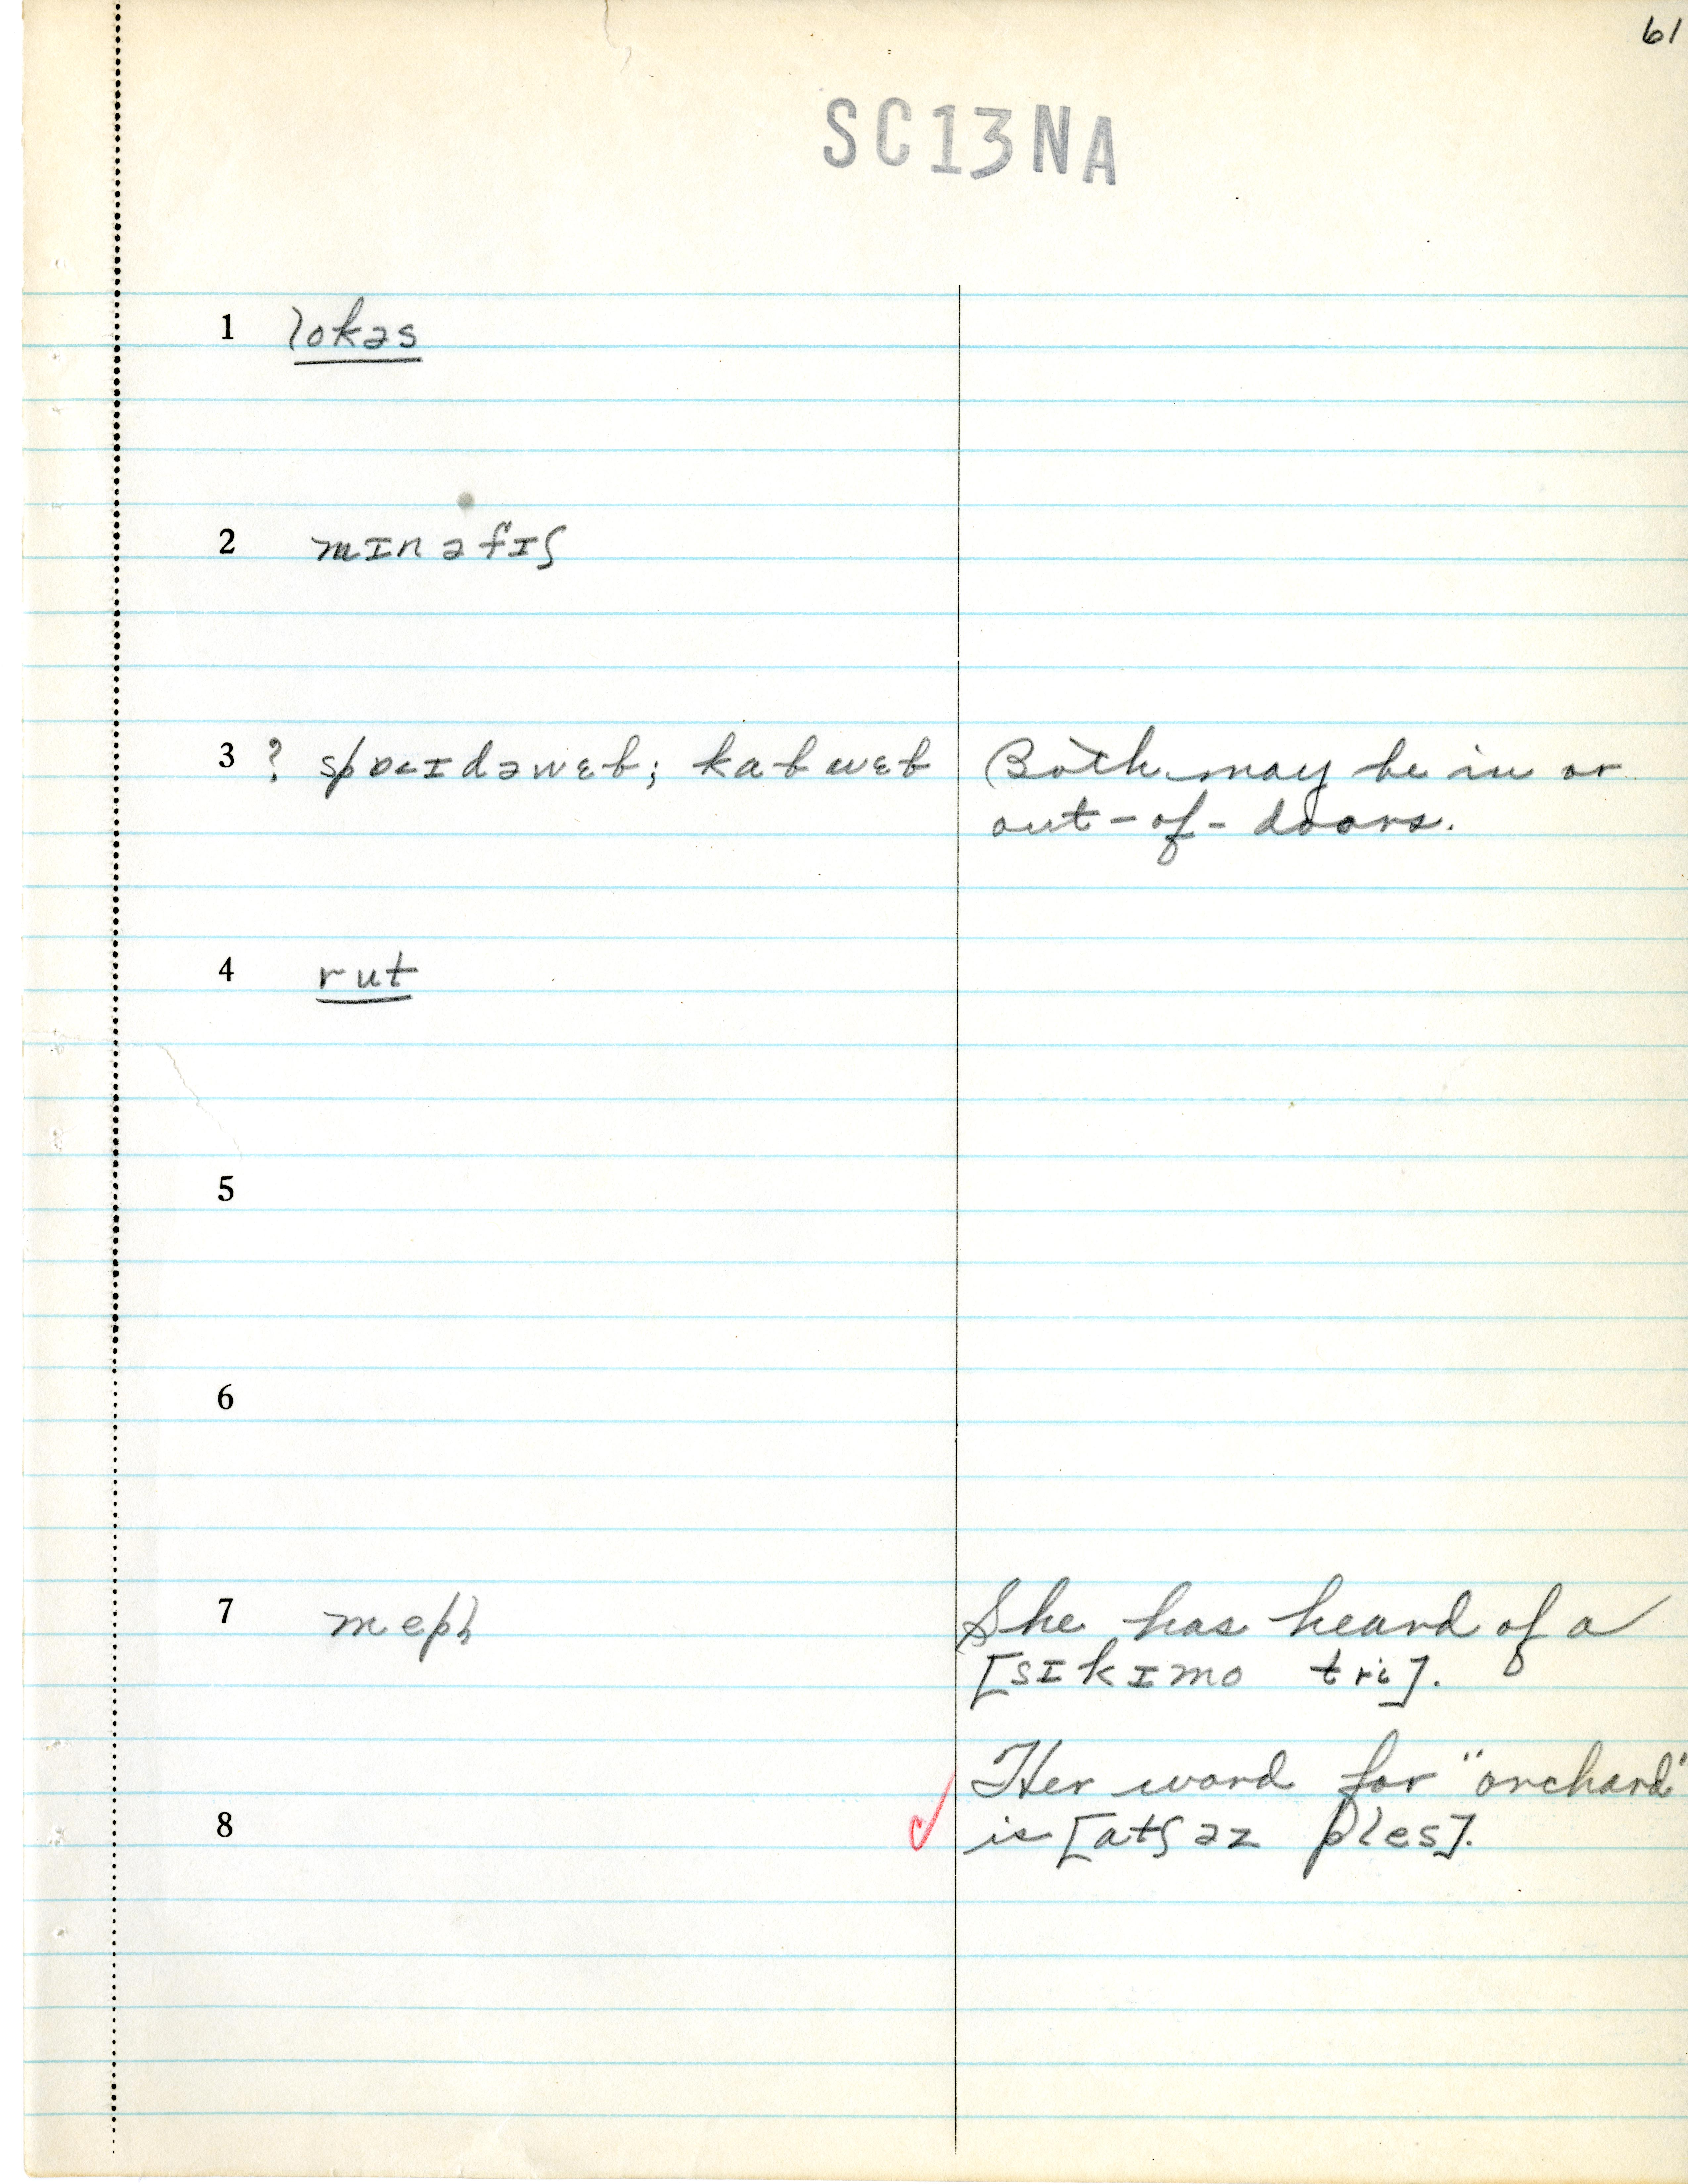 61
SC13NA
1 lokəs
2 mɪnəfɪʃ
3 ? spɒɪdəwɛb; kabwɛb Both may be in or
out-of-doors.
4 rut
5
6
7 mepl She has heard of a
[sɪkɪmo tri].
Her word for "orchard"
8 ✓ is [atʃəz ples].